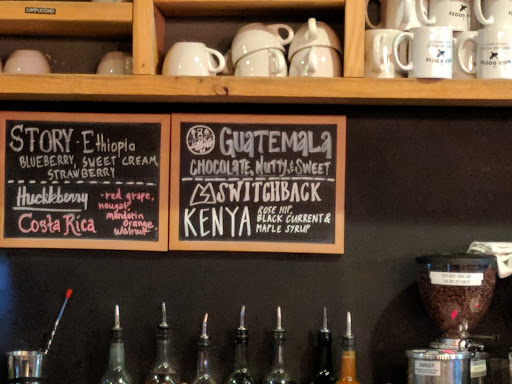 CAPPUCCINO
STORY - Ethiopia
BLUEBERRY, SWEET CREAM,
STRAWBERRY
Huckleberry
Costa Rica
- red grape,
nougat,
mandarin
orange,
walnut
GUATEMALA
CHOCOLATE, NUTTY, & SWEET
SWITCHBACK
KENYA
ROSE HIP,
BLACK CURRENT &
MAPLE SYRUP
STORY DECAF
DANGER